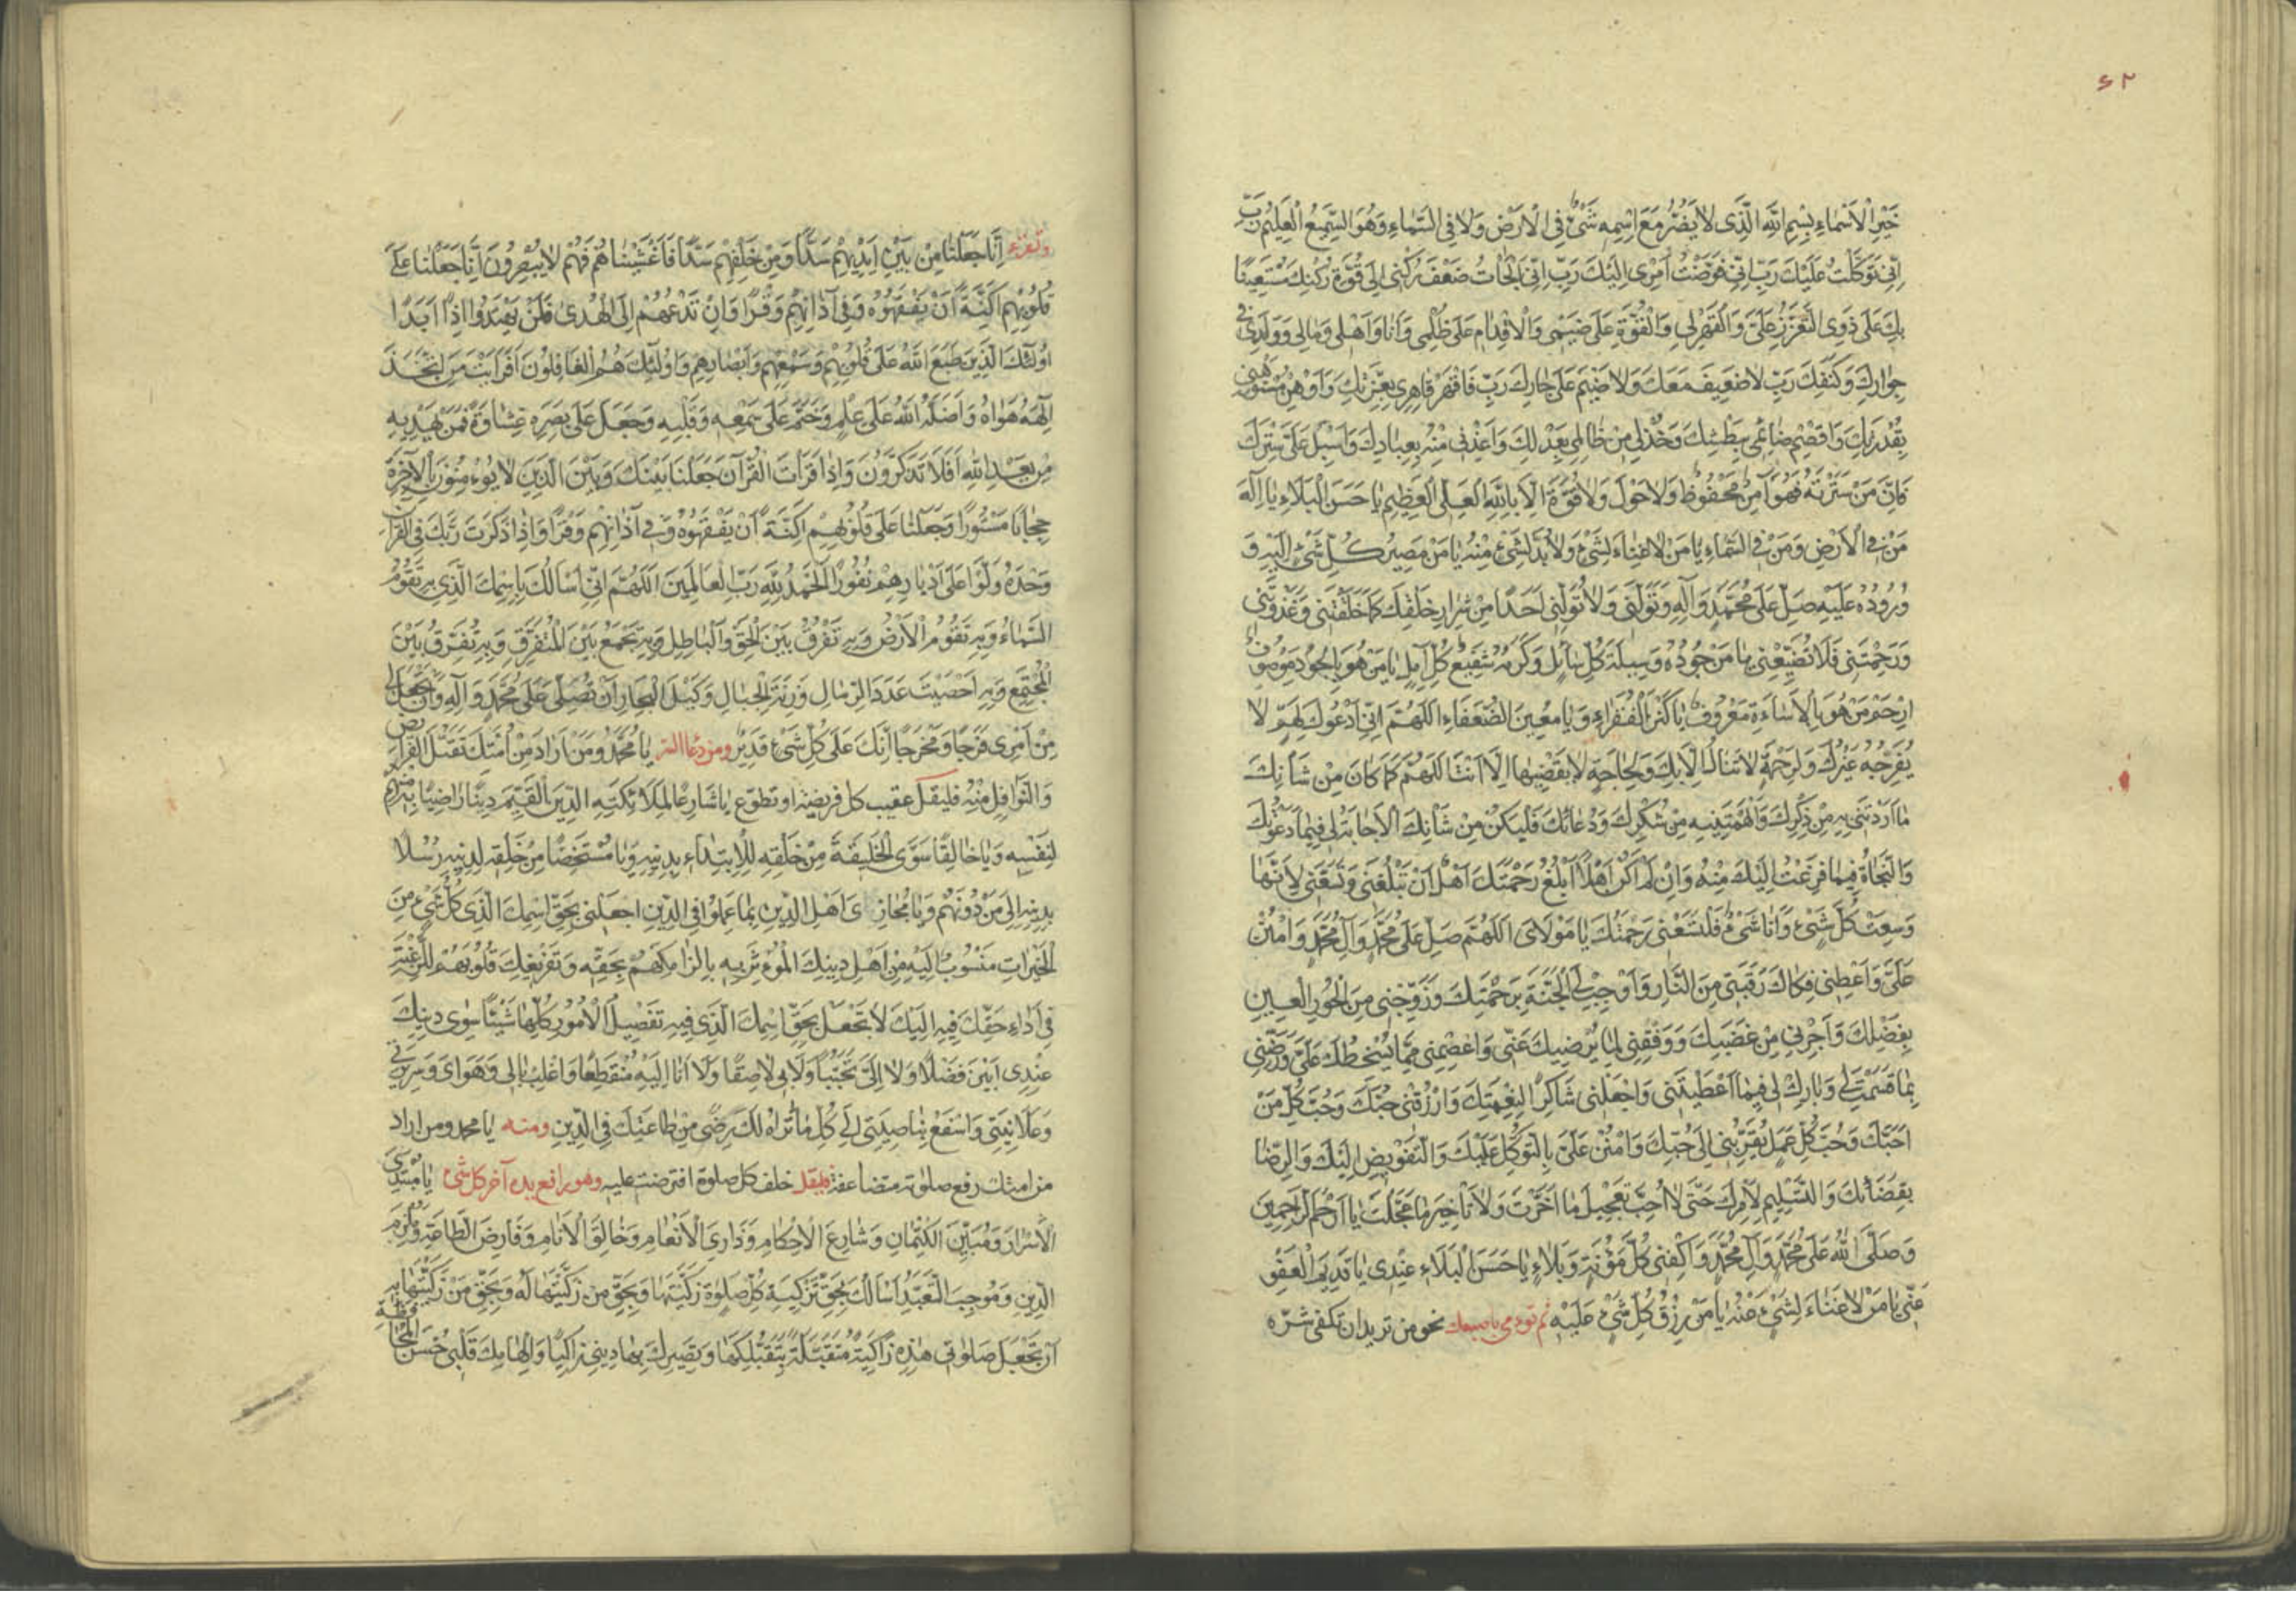 ٦٢
خَيْرِ الْاَسْمَاءِ بِسْمِ اللهِ الَّذِى لَا يَضُرُّ مَعَ اسْمِهِ شَىْءٌ فِى الْاَرْضِ وَلَا فِى السَّمَاءِ وَهُوَ السَّمِيعُ الْعَلِيمُ رَبِّ
اِنِّى تَوَكَّلْتُ عَلَيْكَ رَبِّ اِنِّى فَوَّضْتُ اَمْرِى اِلَيْكَ رَبِّ اِنِّى اَلْجَأْتُ ضَعْفَ رُكْنِى اِلَى قُوَّةِ رُكْنِكَ مُسْتَعِينًا
بِكَ عَلَى ذَوِى التَّعَزُّزِ عَلَىَّ وَالْقَهْرِ لِى وَالْقُوَّةِ عَلَى ضَيْمِى وَالْاِقْدَامِ عَلَى ظُلْمِى وَاَنَا وَاَهْلِى وَمَالِى وَوَلَدِى فِى
جِوَارِكَ وَكَنَفِكَ رَبِّ لَا ضَعِيفَ مَعَكَ وَلَا ضَيْمَ عَلَى جَارِكَ رَبِّ فَاقْهَرْ قَاهِرِى بِعِزَّتِكَ وَاَوْهِنْ مُسْتَوْهِنِى
بِقُدْرَتِكَ وَاقْصِمْ ضَائِمِى بِبَطْشِكَ وَخُذْ لِى مِنْ ظَالِمِى بِعَدْلِكَ وَاَعِذْنِى مِنْهُ بِعِيَاذِكَ وَاَسْبِلْ عَلَىَّ سِتْرَكَ
فَاِنَّ مَنْ سَتَرْتَهُ فَهُوَ آمِنٌ مَحْفُوظٌ وَلَا حَوْلَ وَلَا قُوَّةَ اِلَّا بِاللهِ الْعَلِىِّ الْعَظِيمِ يَا حَسَنَ الْبَلَاءِ يَا اِلٰهَ
مَنْ فِى الْاَرْضِ وَمَنْ فِى السَّمَاءِ يَا مَنْ لَا غِنَاءَ لِشَىْءٍ وَلَا بُدَّ لِشَىْءٍ مِنْهُ يَا مَنْ مَصِيرُ كُلِّ شَىْءٍ اِلَيْهِ وَ
وُرُودُهُ عَلَيْهِ صَلِّ عَلَى مُحَمَّدٍ وَآلِهِ وَتَوَلَّنِى وَلَا تُوَلِّنِى اَحَدًا مِنْ شِرَارِ خَلْقِكَ كَمَا خَلَقْتَنِى وَغَذَوْتَنِى
وَرَحِمْتَنِى فَلَا تُضَيِّعْنِى يَا مَنْ جُودُهُ وَسِيلَةُ كُلِّ سَائِلٍ وَكَرَمُهُ شَفِيعُ كُلِّ آمِلٍ يَا مَنْ هُوَ بِالْجُودِ مَوْصُوفٌ
اِرْحَمْ مَنْ هُوَ بِالْاِسَاءَةِ مَعْرُوفٌ يَا كَنْزَ الْفُقَرَاءِ وَيَا مُعِينَ الضُّعَفَاءِ اَللّٰهُمَّ اِنِّى اَدْعُوكَ لِهَمٍّ لَا
يُفَرِّجُهُ غَيْرُكَ وَلِرَحْمَةٍ لَا تُنَالُ اِلَّا بِكَ وَلِحَاجَةٍ لَا يَقْضِيهَا اِلَّا اَنْتَ اَللّٰهُمَّ كَمَا كَانَ مِنْ شَأْنِكَ
مَا اَرَدْتَنِى بِهِ مِنْ ذِكْرِكَ وَاَلْهَمْتَنِيهِ مِنْ شُكْرِكَ وَدُعَائِكَ فَلْيَكُنْ مِنْ شَأْنِكَ الْاِجَابَةُ لِى فِيمَا دَعَوْتُكَ
وَالنَّجَاةُ فِيمَا فَزِعْتُ اِلَيْكَ مِنْهُ وَاِنْ لَمْ اَكُنْ اَهْلًا اَنْ اَبْلُغَ رَحْمَتَكَ اَهْلٌ اَنْ تَبْلُغَنِى وَتَسَعَنِى لِاَنَّهَا
وَسِعَتْ كُلَّ شَىْءٍ وَاَنَا شَىْءٌ فَلْتَسَعْنِى رَحْمَتُكَ يَا مَوْلَاىَ اَللّٰهُمَّ صَلِّ عَلَى مُحَمَّدٍ وَآلِ مُحَمَّدٍ وَامْنُنْ
عَلَىَّ وَاَعْطِنِى فَكَاكَ رَقَبَتِى مِنَ النَّارِ وَاَوْجِبْ لِىَ الْجَنَّةَ بِرَحْمَتِكَ وَزَوِّجْنِى مِنَ الْحُورِ الْعِينِ
بِفَضْلِكَ وَاَجِرْنِى مِنْ غَضَبِكَ وَوَفِّقْنِى لِمَا يُرْضِيكَ عَنِّى وَاعْصِمْنِى مِمَّا يُسْخِطُكَ عَلَىَّ وَرَضِّنِى
بِمَا قَسَمْتَ لِى وَبَارِكْ لِى فِيمَا اَعْطَيْتَنِى وَاجْعَلْنِى شَاكِرًا لِنِعْمَتِكَ وَارْزُقْنِى حُبَّكَ وَحُبَّ كُلِّ مَنْ
اَحَبَّكَ وَحُبَّ كُلِّ عَمَلٍ يُقَرِّبُنِى اِلَى حُبِّكَ وَامْنُنْ عَلَىَّ بِالتَّوَكُّلِ عَلَيْكَ وَالتَّفْوِيضِ اِلَيْكَ وَالرِّضَا
بِقَضَائِكَ وَالتَّسْلِيمِ لِاَمْرِكَ حَتَّى لَا اُحِبَّ تَعْجِيلَ مَا اَخَّرْتَ وَلَا تَأْخِيرَ مَا عَجَّلْتَ يَا اَرْحَمَ الرَّاحِمِينَ
وَصَلَّى اللهُ عَلَى مُحَمَّدٍ وَآلِ مُحَمَّدٍ وَاكْفِنِى كُلَّ مَؤُنَةٍ وَبَلَاءٍ يَا حَسَنَ الْبَلَاءِ عِنْدِى يَا قَدِيمَ الْعَفْوِ
عَنِّى يَا مَنْ لَا غِنَاءَ لِشَىْءٍ عَنْهُ يَا مَنْ رِزْقُ كُلِّ شَىْءٍ عَلَيْهِ ثم تومى باصبعك نحو من تريد ان تكفى شرّه
وتقرء اِنَّا جَعَلْنَا مِنْ بَيْنِ اَيْدِيهِمْ سَدًّا وَمِنْ خَلْفِهِمْ سَدًّا فَاَغْشَيْنَاهُمْ فَهُمْ لَا يُبْصِرُونَ اِنَّا جَعَلْنَا عَلَى
قُلُوبِهِمْ اَكِنَّةً اَنْ يَفْقَهُوهُ وَفِى آذَانِهِمْ وَقْرًا وَاِنْ تَدْعُهُمْ اِلَى الْهُدَى فَلَنْ يَهْتَدُوا اِذًا اَبَدًا
اُولٰئِكَ الَّذِينَ طَبَعَ اللهُ عَلَى قُلُوبِهِمْ وَسَمْعِهِمْ وَاَبْصَارِهِمْ وَاُولٰئِكَ هُمُ الْغَافِلُونَ اَفَرَاَيْتَ مَنِ اتَّخَذَ
اِلٰهَهُ هَوَاهُ وَاَضَلَّهُ اللهُ عَلَى عِلْمٍ وَخَتَمَ عَلَى سَمْعِهِ وَقَلْبِهِ وَجَعَلَ عَلَى بَصَرِهِ غِشَاوَةً فَمَنْ يَهْدِيهِ
مِنْ بَعْدِ اللهِ اَفَلَا تَذَكَّرُونَ وَاِذَا قَرَاْتَ الْقُرْآنَ جَعَلْنَا بَيْنَكَ وَبَيْنَ الَّذِينَ لَا يُؤْمِنُونَ بِالْآخِرَةِ
حِجَابًا مَسْتُورًا وَجَعَلْنَا عَلَى قُلُوبِهِمْ اَكِنَّةً اَنْ يَفْقَهُوهُ وَفِى آذَانِهِمْ وَقْرًا وَاِذَا ذَكَرْتَ رَبَّكَ فِى الْقُرْآنِ
وَحْدَهُ وَلَّوْا عَلَى اَدْبَارِهِمْ نُفُورًا اَلْحَمْدُ لِلّٰهِ رَبِّ الْعَالَمِينَ اَللّٰهُمَّ اِنِّى اَسْاَلُكَ بِاسْمِكَ الَّذِى بِهِ تَقُومُ
السَّمَاءُ وَبِهِ تَقُومُ الْاَرْضُ وَبِهِ تَفْرُقُ بَيْنَ الْحَقِّ وَالْبَاطِلِ وَبِهِ تَجْمَعُ بَيْنَ الْمُتَفَرِّقِ وَبِهِ تُفَرِّقُ بَيْنَ
الْمُجْتَمِعِ وَبِهِ اَحْصَيْتَ عَدَدَ الرِّمَالِ وَزِنَةَ الْجِبَالِ وَكَيْلَ الْبِحَارِ اَنْ تُصَلِّىَ عَلَى مُحَمَّدٍ وَآلِهِ وَاَنْ تَجْعَلَ لِى
مِنْ اَمْرِى فَرَجًا وَمَخْرَجًا اِنَّكَ عَلَى كُلِّ شَىْءٍ قَدِيرٌ ومن دعا السر يَا مُحَمَّدُ وَمَنْ اَرَادَ مِنْ اُمَّتِكَ تَقَبُّلَ الْفَرَائِضِ
وَالنَّوَافِلِ مِنْهُ فليقل عقيب كل فريضة او تطوّع يَا شَارِعًا لِمَلَائِكَتِهِ الدِّينَ الْقَيِّمَ دِينًا رَاضِيًا بِهِ مِنْهُمْ
لِنَفْسِهِ وَيَا خَالِقًا سِوَى الْخَلِيقَةِ مِنْ خَلْقِهِ لِلْاِبْتِلَاءِ بِدِينِهِ وَيَا مُسْتَخِصًّا مِنْ خَلْقِهِ لِدِينِهِ رُسُلًا
بِدِينِهِ اِلَى مَنْ دُونَهُمْ وَيَا مُجَازِىَ اَهْلِ الدِّينِ بِمَا عَمِلُوا فِى الدِّينِ اجْعَلْنِى بِحَقِّ اسْمِكَ الَّذِى كُلُّ شَىْءٍ مِنَ
الْخَيْرَاتِ مَنْسُوبٌ اِلَيْهِ مِنْ اَهْلِ دِينِكَ الْمُؤْثَرِ بِهِ بِاِلْزَامِكَهُمْ بِحَقِّهِ وَتَفْرِيغِكَ قُلُوبَهُمْ لِلرَّغْبَةِ
فِى اَدَاءِ حَقِّكَ فِيهِ اِلَيْكَ لَا تَجْعَلْ بِحَقِّ اسْمِكَ الَّذِى فِيهِ تَفْصِيلُ الْاُمُورِ كُلِّهَا شَيْئًا سِوَى دِينِكَ
عِنْدِى اَبْيَنَ فَضْلًا وَلَا اِلَىَّ تَحَبُّبًا وَلَا بِى لَاصِقًا وَلَا اَنَا اِلَيْهِ مُنْقَطِعًا وَاغْلِبْ بَالِى وَهَوَاىَ وَسَرِيرَتِى
وَعَلَانِيَتِى وَاسْفَعْ بِنَاصِيَتِى اِلَى كُلِّ مَا تَرَاهُ لَكَ رِضًى مِنْ طَاعَتِكَ فِى الدِّينِ ومنه يا محمد ومن اراد
من امتك رفع صلوته متضاعفة فليقل خلف كل صلوة افترضت عليه وهو رافع يده آخر كل شىء يَا مُبْدِىَ
الْاَسْرَارِ وَمُبَيِّنَ الْكِتْمَانِ وَشَارِعَ الْاَحْكَامِ وَذَارِىَ الْاَنْعَامِ وَخَالِقَ الْاَنَامِ وَفَارِضَ الطَّاعَةِ وَمُلْزِمَ
الدِّينِ وَمُوجِبَ التَّعَبُّدِ اَسْاَلُكَ بِحَقِّ تَزْكِيَةِ كُلِّ صَلٰوةٍ زَكَّيْتَهَا وَبِحَقِّ مَنْ زَكَّيْتَهَا لَهُ وَبِحَقِّ مَنْ زَكَّيْتَهَا بِهِ
اَنْ تَجْعَلَ صَلَوَاتِى هٰذِهِ زَاكِيَةً مُتَقَبَّلَةً بِتَقَبُّلِكَهَا وَتَصْيِيرِكَ بِهَا دِينِى زَاكِيًا وَاِلْهَامِكَ قَلْبِى حُسْنَ الْمُحَافَظَةِ